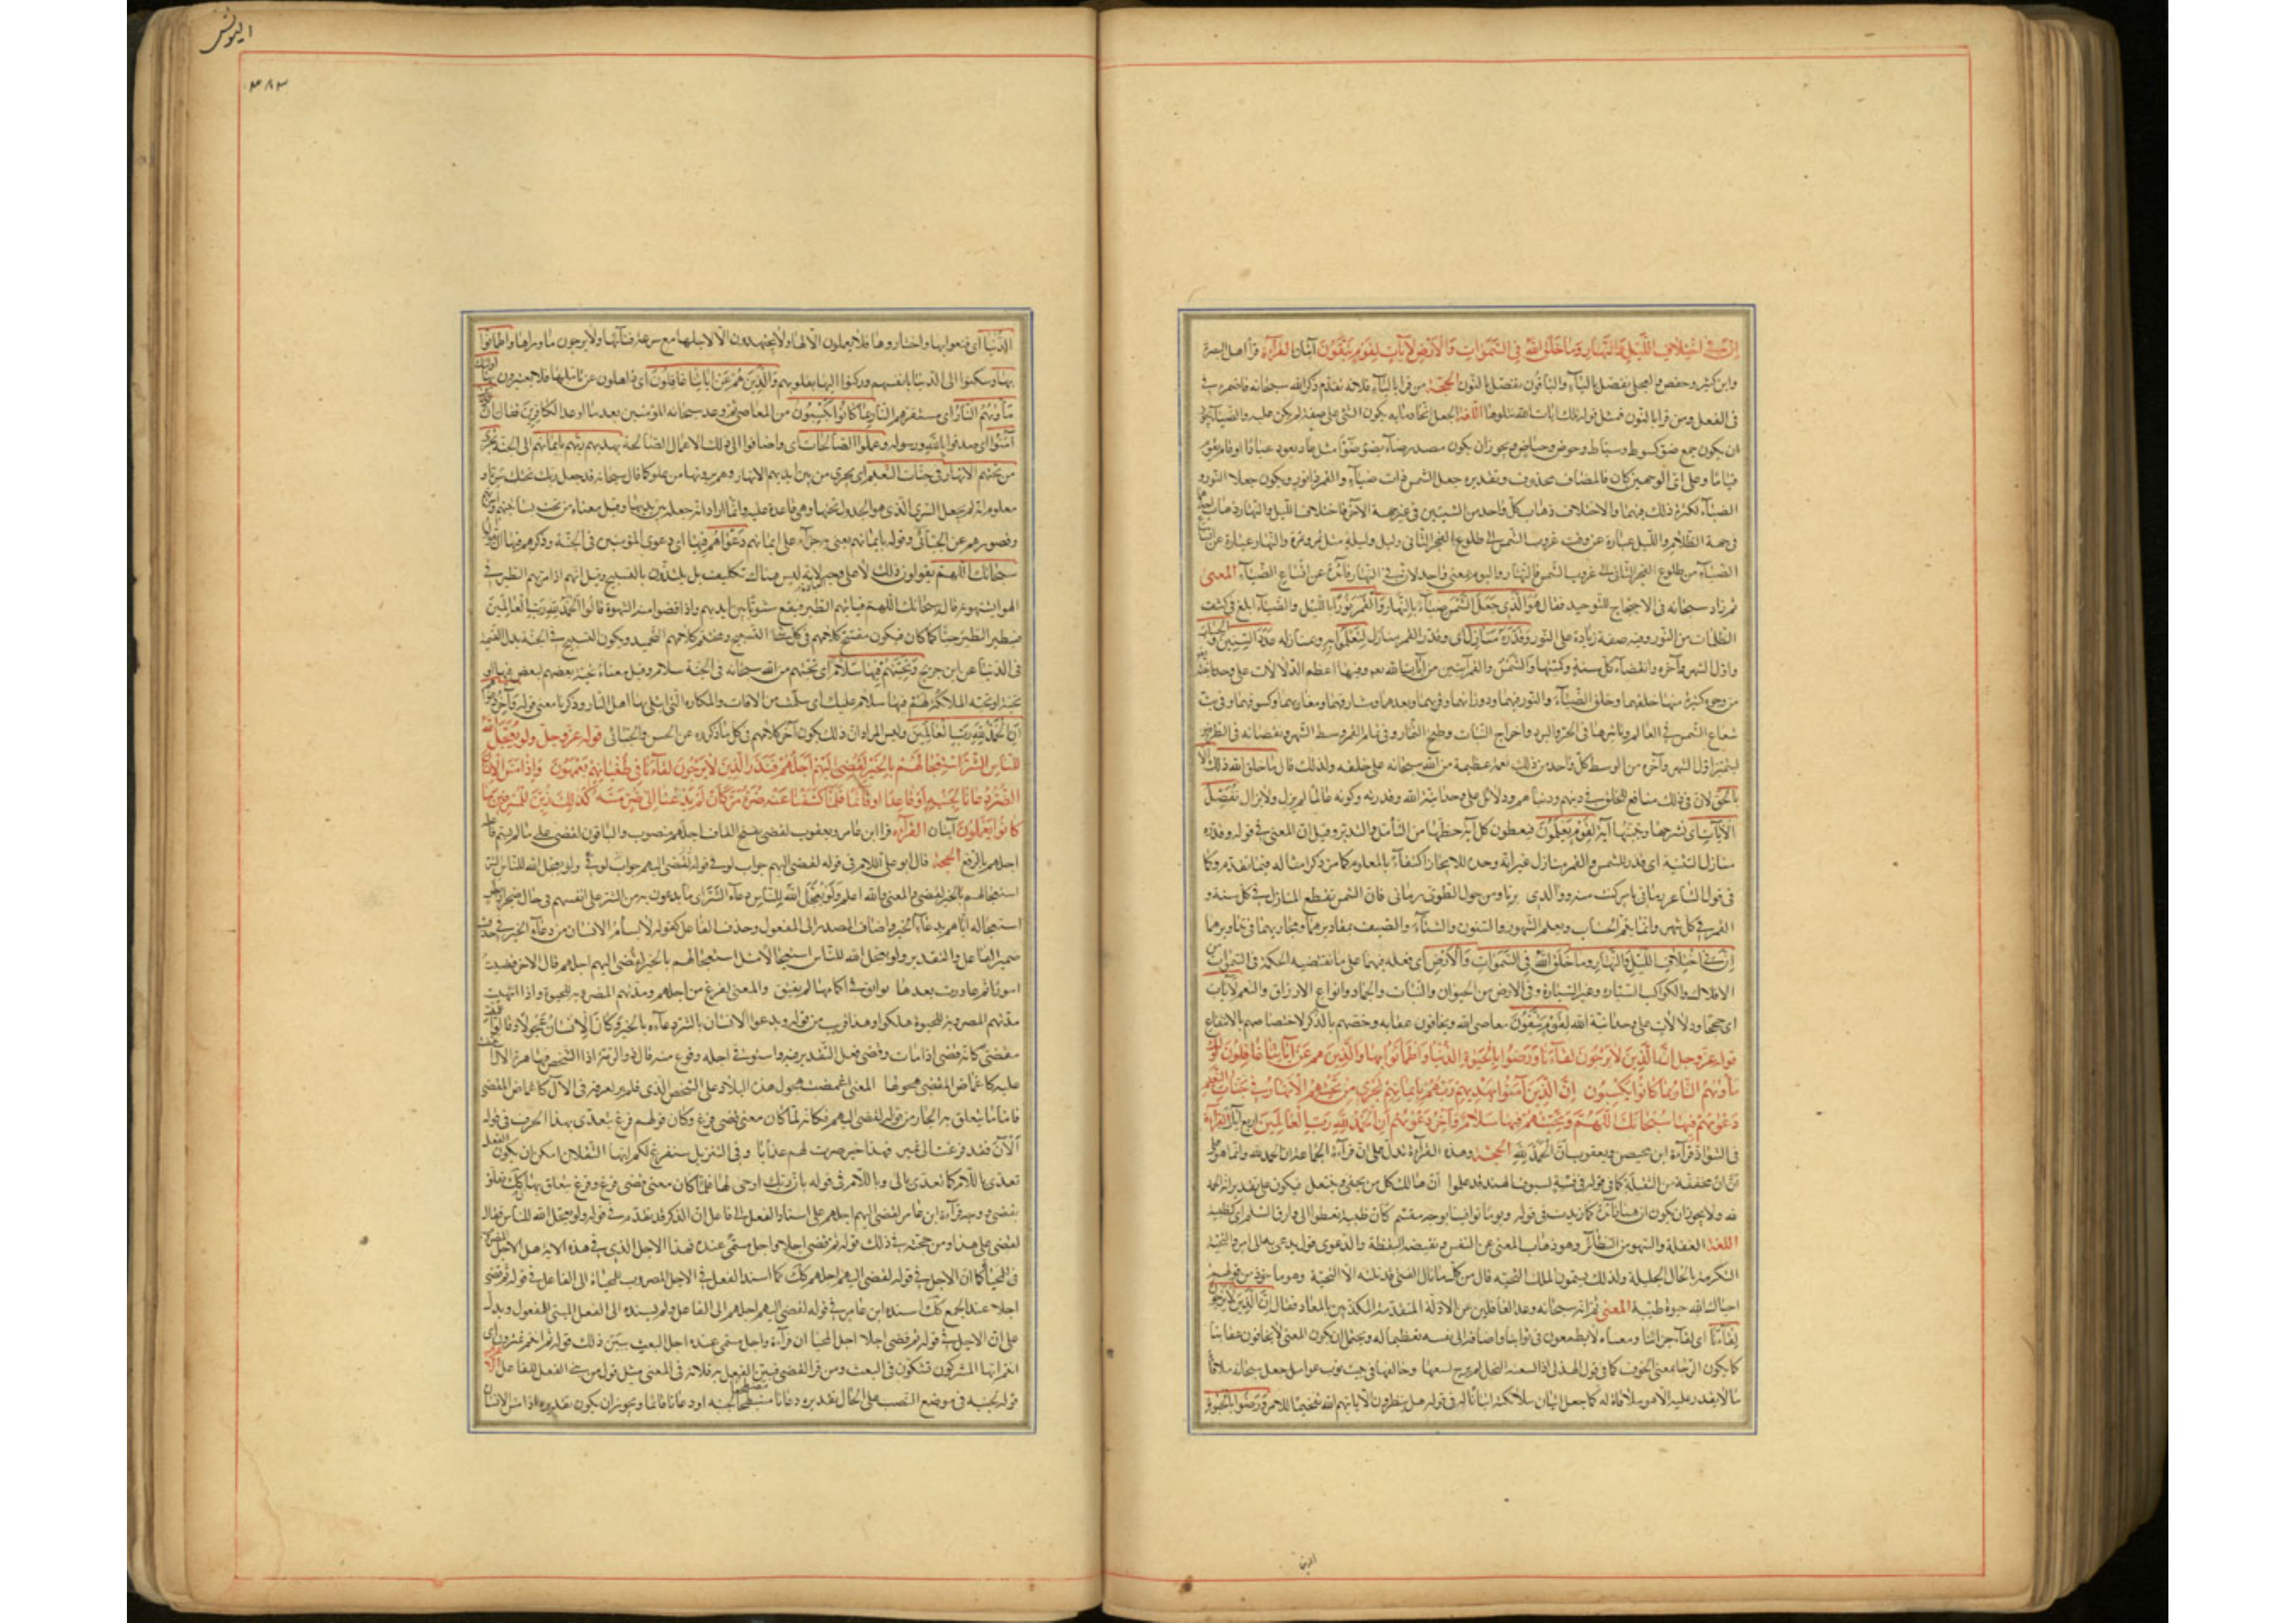 إن في اختلاف الليل والنهار وما خلق الله في السموات والأرض لآيات لقوم يتقون آيتان القراءة قرأ اهل البصرة
وابن كثير وحفص والعجلي يفصل بالياء والباقون نفصل بالنون الحجة من قرأ بالياء فلانه تقدم ذكر الله سبحانه فاضمره في
في الفعل ومن قرأ بالنون فمثل قوله تلك ايات الله نتلوها اللغة الجعل ايجاد ما به يكون الشئ على صفة لم يكن عليه والضياء يجوز
ان يكون جمع ضوء كسوط وسياط وحوض وحياض ويجوز ان يكون مصدر ضاء يضوء ضوءا مثل عاد يعود عيادا او قام يقوم
قياما وعلى اي الوجهين كان فالمضاف محذوف وتقديره جعل الشمس ذات ضياء والقمر ذا نور ويكون جعلا النور و
الضياء لكثرة ذلك فيهما والاختلاف ذهاب كل واحد من الشيئين في غير جهة الآخر فاختلاف الليل والنهار ذهاب
في جهة الظلام والليل عبارة عن وقت غروب الشمس الى طلوع الفجر الثاني وليل وليلة مثل تمر وتمرة والنهار عبارة عن
الضياء من طلوع الفجر الثاني الى غروب الشمس والنهار واليوم بمعنى واحد لان في النهار فائدة عن اتساع الضياء المعنى
ثم زاد سبحانه في الاحتجاج للتوحيد فقال هو الذي جعل الشمس ضياء بالنهار والقمر نورا بالليل والضياء ابلغ في كشف
الظلمات من النور وفيه صفة زيادة على النور وقدره منازل اي وقدر القمر منازل لتعلموا به وبمنازله عدد السنين والحساب
واول الشهر وآخره وانقضاء كل سنة وكميتها والشمس والقمر آيتين من آيات الله تعم وفيهما اعظم الدلالات على وحدانيته
من وجوه كثيرة منها خلقهما وخلق الضياء والنور فيهما ودورانهما وقربهما وبعدهما ومشارقهما ومغاربهما وكسوفهما وفي بث
شعاع الشمس في العالم وتاثيرها في الحر والبرد واخراج النبات وطبخ الثمار وفي تمام القمر وسط الشهر ونقصانه في الطرفين
ليتميز اول الشهر وآخره من الوسط كل واحد من ذلك نعمة عظيمة من الله سبحانه على خلقه ولذلك قال ما خلق الله ذلك الا
بالحق لان في ذلك منافع للخلق في دينهم ودنياهم ودلائل على وحدانية الله وقدرته وكونه عالما لم يزل ولا يزال نفصل
الآيات اي نشرحها ونبينها آية آية لقوم يعلمون فيعطون كل آية حظها من التأمل والتدبر وقيل ان المعنى في قوله وقدره
منازل التثنية اي قدر للشمس والقمر منازل غير انه وحده للايجاز اكتفاء بالمعلوم كما مر ذكر امثاله فيما تقدم وكما
في قول الشاعر رماني بامر كنت منه ووالدي بريا ومن جول الطوى رماني فان الشمس تقطع المنازل في كل سنة و
القمر في كل شهر وانما يتم الحساب ويعلم الشهور والسنون والشتاء والصيف بمقاديرهما ومجاريهما في تداويرهما
إن في اختلاف الليل والنهار وما خلق الله في السموات والأرض اي فعله فيهما على ما تقتضيه الحكمة في السموات من
الافلاك والكواكب السيارة وغير السيارة وفي الارض من الحيوان والنبات والجماد وانواع الارزاق والنعم لآيات
اي حججا ودلالات على وحدانية الله لقوم يتقون معاصي الله ويخافون عقابه وخصهم بالذكر لاختصاصهم بالانتفاع
قوله عز وجل إن الذين لا يرجون لقاءنا ورضوا بالحيوة الدنيا واطمأنوا بها والذين هم عن آياتنا غافلون اولئك
مأويهم النار بما كانوا يكسبون إن الذين آمنوا وعملوا الصالحات يهديهم ربهم بايمانهم تجري من تحتهم الأنهار في جنات النعيم
دعويهم فيها سبحانك اللهم وتحيتهم فيها سلام وآخر دعويهم أن الحمد لله رب العالمين اربع آيات القراءة
في الشواذ قراءة ابن محيصن ويعقوب أن الحمد لله الحجة وهذه القراءة تدل على ان قراءة الجماعة ان الحمد لله وانما هو على
ان ان مخففة من الثقيلة كما في قوله في فتية كسيوف الهند قد علموا أن هالك كل من يحفى وينتعل فيكون على تقدير انه الحمد
لله ولا يجوز ان يكون ان هنا زائدة كما زيدت في قوله ويوما توافينا بوجه مقسم كان ظبية تعطوا الى وارق السلم اي كظبية
اللغة الغفلة والسهو من النظائر وهو ذهاب المعنى عن النفس ونقيضه اليقظة والدعوى قول يدعى به الى امر والتحية
التكرمة بالحال الجليلة ولذلك يسمون الملك التحية قال من كل ما نال الفتى قد نلته الا التحية وهو ماخوذ من قولهم
احياك الله حيوة طيبة المعنى ثم انه سبحانه وعد الغافلين عن الادلة المتقدمة المكذبين بالمعاد فقال ان الذين لا يرجون
لقاءنا اي لقاء جزائنا ومعناه لا يطمعون في ثوابنا واضافه الى نفسه تعظيما له ويحتمل ان يكون المعنى لا يخافون عقابنا
كما يكون الرجا بمعنى الخوف كما في قول الهذلي اذا لسعته النحل لم يرج لسعها وخالفها في بيت نوب عواسل جعل سبحانه ملاقاة
ما لا يقدر عليه الا هو ملاقاة له كما جعل اتيان ملائكته اتيانا له في قوله هل ينظرون الا ان ياتيهم الله تفخيما للامر ورضوا بالحيوة
الدنيا
ايونس
٤٨٣
الدنيا اي قنعوا بها واختاروها فلا يعملون الا لها ولا يجتهدون الا لاجلها مع سرعة فنائها ولا يرجون ما وراءها واطمأنوا
بها وسكنوا الى الدنيا بانفسهم وركنوا اليها بقلوبهم والذين هم عن اياتنا غافلون اي ذاهلون عن تاملها فلا يعتبرون بها اولئك
مأويهم النار اي مستقرهم النار بما كانوا يكسبون من المعاصي ثم وعد سبحانه المؤمنين بعد ما اوعد الكافرين فقال ان الذين
آمنوا اي صدقوا بالله ورسوله وعملوا الصالحات اي واضافوا الى ذلك الاعمال الصالحة يهديهم ربهم بايمانهم الى الجنة تجري
من تحتهم الانهار في جنات النعيم اي يجري من بين ايديهم الانهار وهم يرونها من علو كما قال سبحانه قد جعل ربك تحتك سريا و
معلوم انه لم يجعل السري الذي هو الجدول تحتها وهي قاعدة عليه وانما اراد انه جعله بين يديها وقيل معناه من تحت بساتينهم
وقصورهم عن الجبائي وقوله بايمانهم يعني به جزاء على ايمانهم دعواهم فيها اي دعوى المؤمنين في الجنة وذكرهم فيها ان يقولوا
سبحانك اللهم يقولون ذلك لا على وجه العبادة لانه ليس هناك تكليف بل يلتذون بالتسبيح وقيل انهم اذا مر بهم الطير في
الهواء يشتهونه قالوا سبحانك اللهم فياتيهم الطير فيقع مشويا بين ايديهم واذا قضوا منه الشهوة قالوا الحمد لله رب العالمين
فيطير الطير حيا كما كان فيكون مفتتح كلامهم في كل شئ التسبيح ومختتم كلامهم التحميد ويكون التسبيح في الجنة بدل التسمية
في الدنيا عن ابن جريج وتحيتهم فيها سلام اي تحيتهم من الله سبحانه في الجنة سلام وقيل معناه تحية بعضهم لبعض فيها او
تحية الملائكة لهم فيها سلام عليك اي سلمت من الافات والمكاره التي ابتلي بها اهل النار وذكرنا معنى قوله وآخر دعويهم
أن الحمد لله رب العالمين وليس المراد ان ذلك يكون آخر كلامهم في كل ما ذكره عن الحسن والجبائي قوله عز وجل ولو يعجل الله
للناس الشر استعجالهم بالخير لقضي اليهم أجلهم فنذر الذين لا يرجون لقاءنا في طغيانهم يعمهون وإذا مس الإنسان
الضر دعانا لجنبه أو قاعدا أو قائما فلما كشفنا عنه ضره مر كأن لم يدعنا إلى ضر مسه كذلك زين للمسرفين ما
كانوا يعملون آيتان القراءة قرأ ابن عامر ويعقوب لقضى بفتح القاف اجلهم منصوب والباقون لقضي على ما لم يسم فاعله
اجلهم بالرفع الحجة قال ابو علي اللام في قوله لقضي اليهم جواب لو في قوله ولو يعجل الله للناس الشر
استعجالهم بالخير لقضي والمعنى والله اعلم ولو يعجل الله للناس دعاء الشر اي ما يدعون به من الشر على انفسهم في حال ضجر
استعجاله اياهم بدعاء الخير واضاف المصدر الى المفعول وحذف الفاعل كقوله لا يسأم الانسان من دعاء الخير في حذف
ضمير الفاعل والتقدير ولو يعجل الله للناس الشر استعجالا مثل استعجالهم بالخير لقضي اليهم اجلهم قال الاخر قضيت
امورا ثم غادرت بعدها بوائق في اكمامها لم يفتق والمعنى لفرغ من اجلهم ومدتهم المضروبة للحيوة واذا انتهت
مدتهم المضروبة للحيوة هلكوا وهذا قريب من قوله ويدعوا الانسان بالشر دعاءه بالخير وكان الانسان عجولا وقالوا للميت
مقضي كانه قضى اذا مات وقضى فعل التقدير فيه واستوفى اجله وقوع منه قال ذو الرمة اذا الشخص فيها هزه الآل اغمضت
عليه كاغماض المقضي هجولها المعنى اغمضت هجول هذه البلاد على الشخص الذي فلم ير لغرقه في الآل كاغماض المقضي
فاما ما يتعلق به الجار من قوله لقضي اليهم فكانه لما كان معنى قضى فرغ وكان قولهم فرغ يتعدى بهذا الحرف في قوله
الآن فقد فرغت الى نمير فهذا حين صرت لهم عذابا وفي التنزيل سنفرغ لكم ايها الثقلان امكن ان يكون الفعل
تعدى باللام كما تعدى بالى وباللام في قوله بان ربك اوحى لها فلما كان معنى قضى فرغ وفرغ تعلق بها الى كذلك تعلق
بقضى ووجه قراءة ابن عامر لقضى اليهم اجلهم على اسناد الفعل الى الفاعل ان الذكر قد تقدم في قوله ولو يعجل الله للناس فقال
لقضى على هذا ومن حجته في ذلك قوله ثم قضى اجلا واجل مسمى عنده فهذا الاجل الذي في هذه الاية هو الاجل المضروب
في المحيا كما ان الاجل في قوله لقضي اليهم اجلهم كذلك كما اسند الفعل في الاجل المضروب للحياة الى الفاعل في قوله ثم قضى
اجلا عند الجميع كذلك اسنده ابن عامر في قوله لقضى اليهم اجلهم الى الفاعل ولم يسنده الى الفعل المبني للمفعول ويدل
على ان الاجل في قوله ثم قضى اجلا اجل المحيا ان قراءة واجل مسمى عنده اجل البعث يبين ذلك قوله ثم انتم تمترون اي
انتم ايها المشركون تشكون في البعث ومن قرأ لقضي فبنى الفعل به فلانه في المعنى مثل قول من بنى الفعل للفاعل
قوله لجنبه في موضع النصب على الحال تقديره دعانا منبطحا لجنبه او دعانا قائما ويجوز ان يكون تقديره اذا مس الانسان